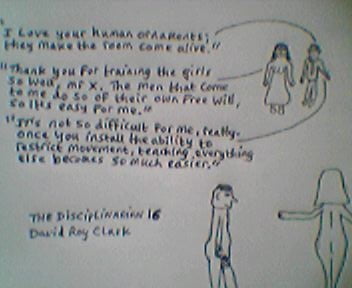 "I Love your human ornaments;
they make the room come alive."
"Thank you for training the girls
so well, Mr X. The men that come
to me do so of their own free will,
so it's easy for me."
"It's not so difficult for me, really-
once you install the ability to
restrict movement, teaching everything
else becomes so much easier."
THE DISCIPLINARIAN 16
David Roy Clark